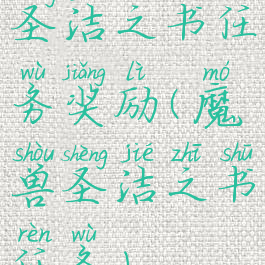 圣洁之书任
wù jiǎng lì mó
务奖励(魔
shòu shèng jié zhī shū
兽圣洁之书
rèn wù
任务)